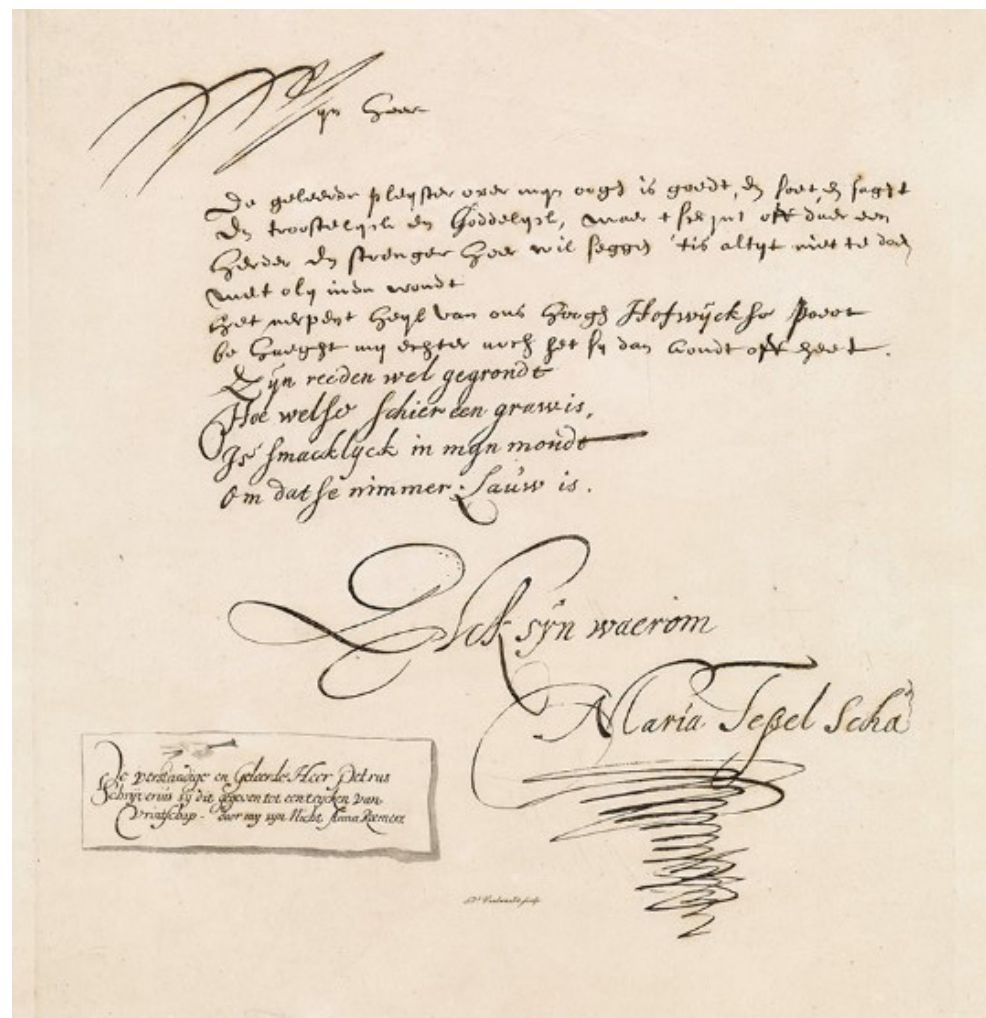 Myn Heer
De geleerde pleyster over myn ooge is goedt, en soet, en sagt
En troostelyck en Goddelyck, maer t schynt off daer een
Herder En strenger Heer wil seggen 'tis altyt niet te doen
met oly inden wondt
Het heyl van ons Hoogh Hofwyckse Poeet
be haeght my echter noch het sy dan koudt off heet.
Zyn reeden wel gegrondt
Hoe welse schier een grauw is,
Is smacklyck in myn mondt
Om datse nimmer Lauw is.
Ick syn waerom
Maria Tessel Scha
De verstandige en Geleerde Heer Petrus
Schrijverius sy dit gegeven tot een teycken van
Vrintschap. door my syn Nicht Anna Roemers
sculp